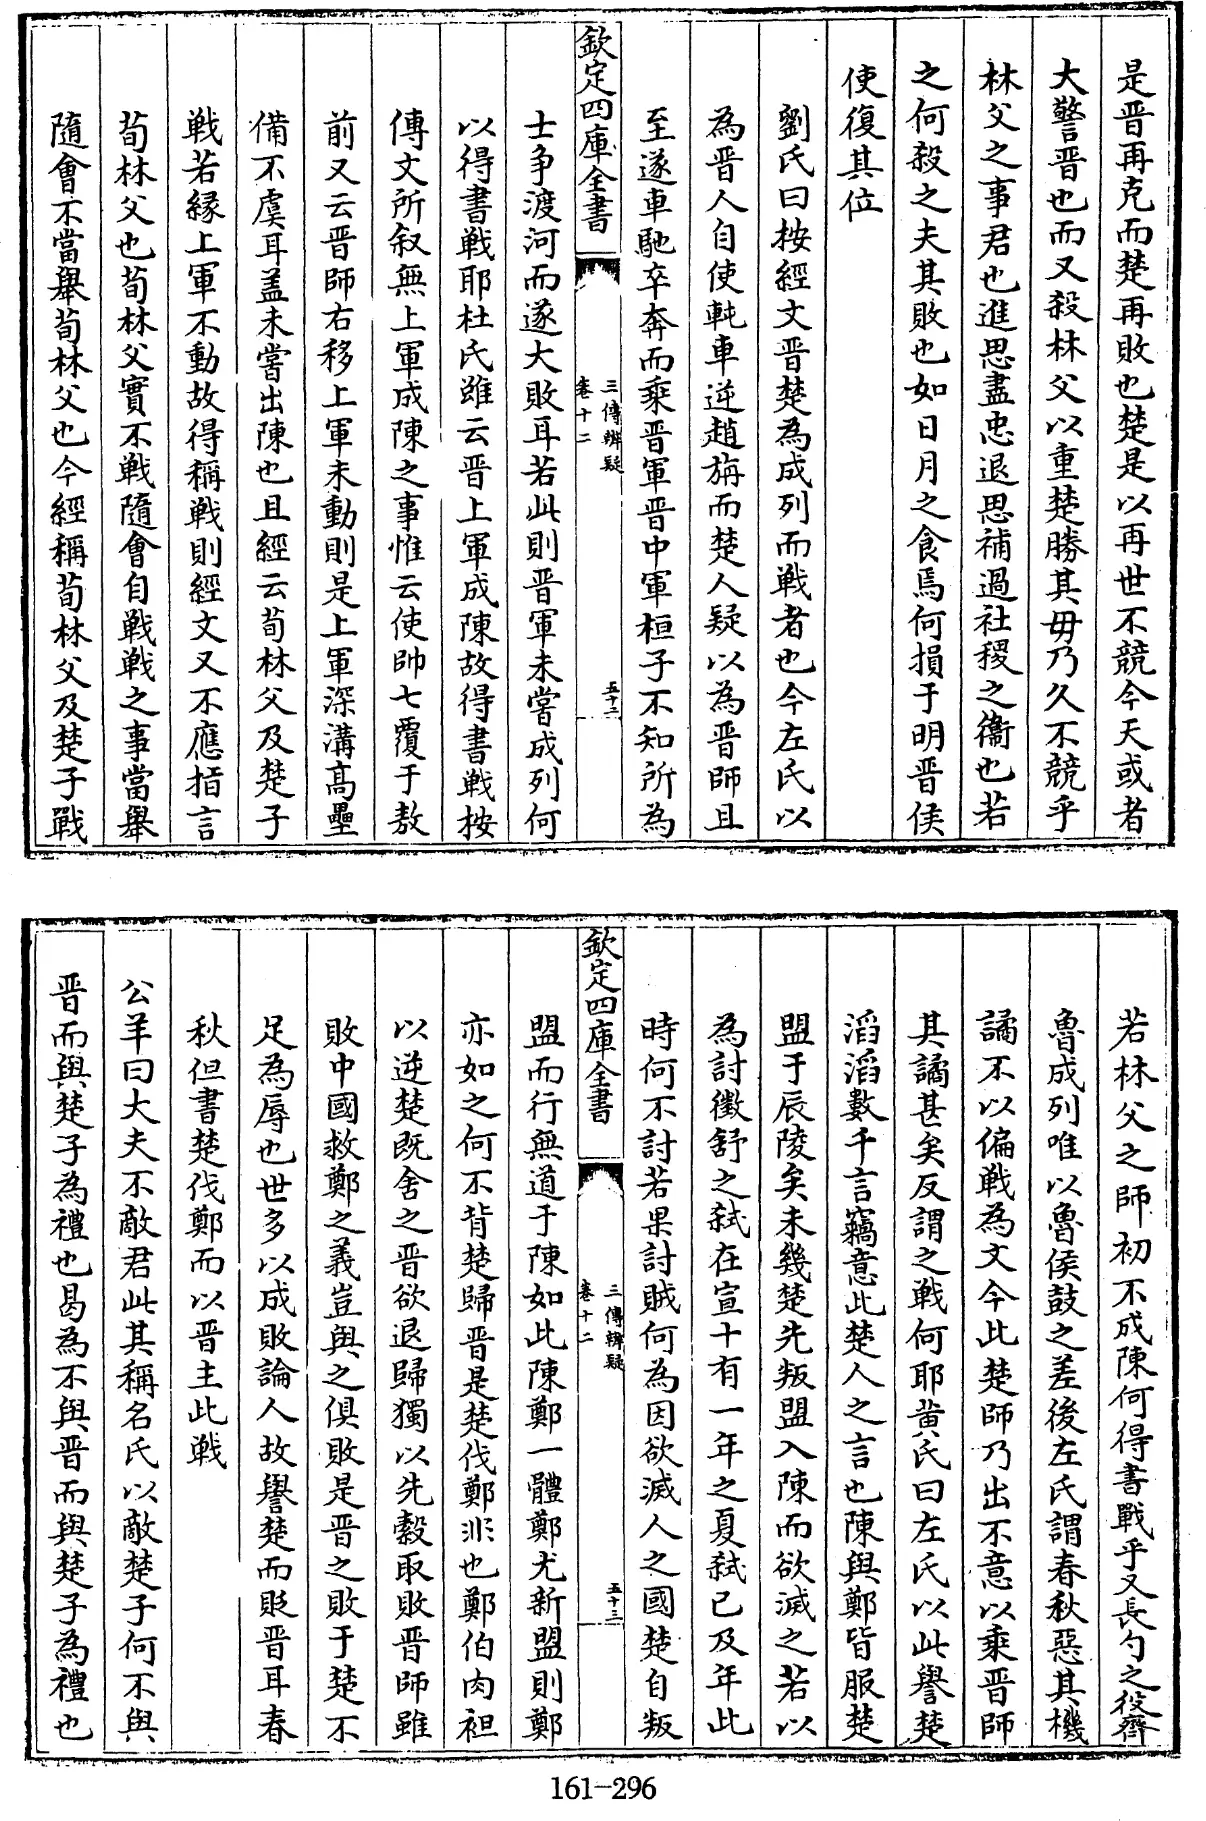 是晋再克而楚再敗也楚是以再世不競今天或者
大警晋也而又殺林父以重楚勝其毋乃久不競乎
林父之事君也進思盡忠退思補過社稷之衞也若
之何殺之夫其敗也如日月之食焉何損于明晋侯
使復其位
劉氏曰按經文晋楚為成列而戰者也今左氏以
為晋人自使軘車逆趙旃而楚人疑以為晋師且
至遂車馳卒奔而乘晋軍晋中軍桓子不知所為
欽定四庫全書
三傳辨疑
卷十二
五十二
士争渡河而遂大敗耳若此則晋軍未嘗成列何
以得書戰耶杜氏雖云晋上軍成陳故得書戰按
傳文所叙無上軍成陳之事惟云使帥七覆于敖
前又云晋師右移上軍未動則是上軍深溝髙壘
備不虞耳盖未嘗出陳也且經云荀林父及楚子
戰若縁上軍不動故得稱戰則經文又不應指言
荀林父也荀林父實不戰隨會自戰戰之事當舉
隨會不當舉荀林父也今經稱荀林父及楚子戰
若林父之師初不成陳何得書戰乎又長勺之役齊
魯成列唯以魯侯鼓之差後左氏謂春秋惡其機
譎不以偏戰為文今此楚師乃出不意以乘晋師
其譎甚矣反謂之戰何耶黄氏曰左氏以此譽楚
滔滔數千言竊意此楚人之言也陳與鄭皆服楚
盟于辰陵矣未幾楚先叛盟入陳而欲滅之若以
為討徵舒之弑在宣十有一年之夏弑已及年此
時何不討若果討賊何為因欲滅人之國楚自叛
欽定四庫全書
三傳辨疑
卷十二
五十三
盟而行無道于陳如此陳鄭一體鄭尤新盟則鄭
亦如之何不背楚歸晋是楚伐鄭非也鄭伯肉袒
以逆楚既舍之晋欲退歸獨以先縠取敗晋師雖
敗中國救鄭之義豈與之俱敗是晋之敗于楚不
足為辱也世多以成敗論人故譽楚而貶晋耳春
秋但書楚伐鄭而以晋主此戰
公羊曰大夫不敵君此其稱名氏以敵楚子何不與
晋而與楚子為禮也曷為不與晋而與楚子為禮也
161-296